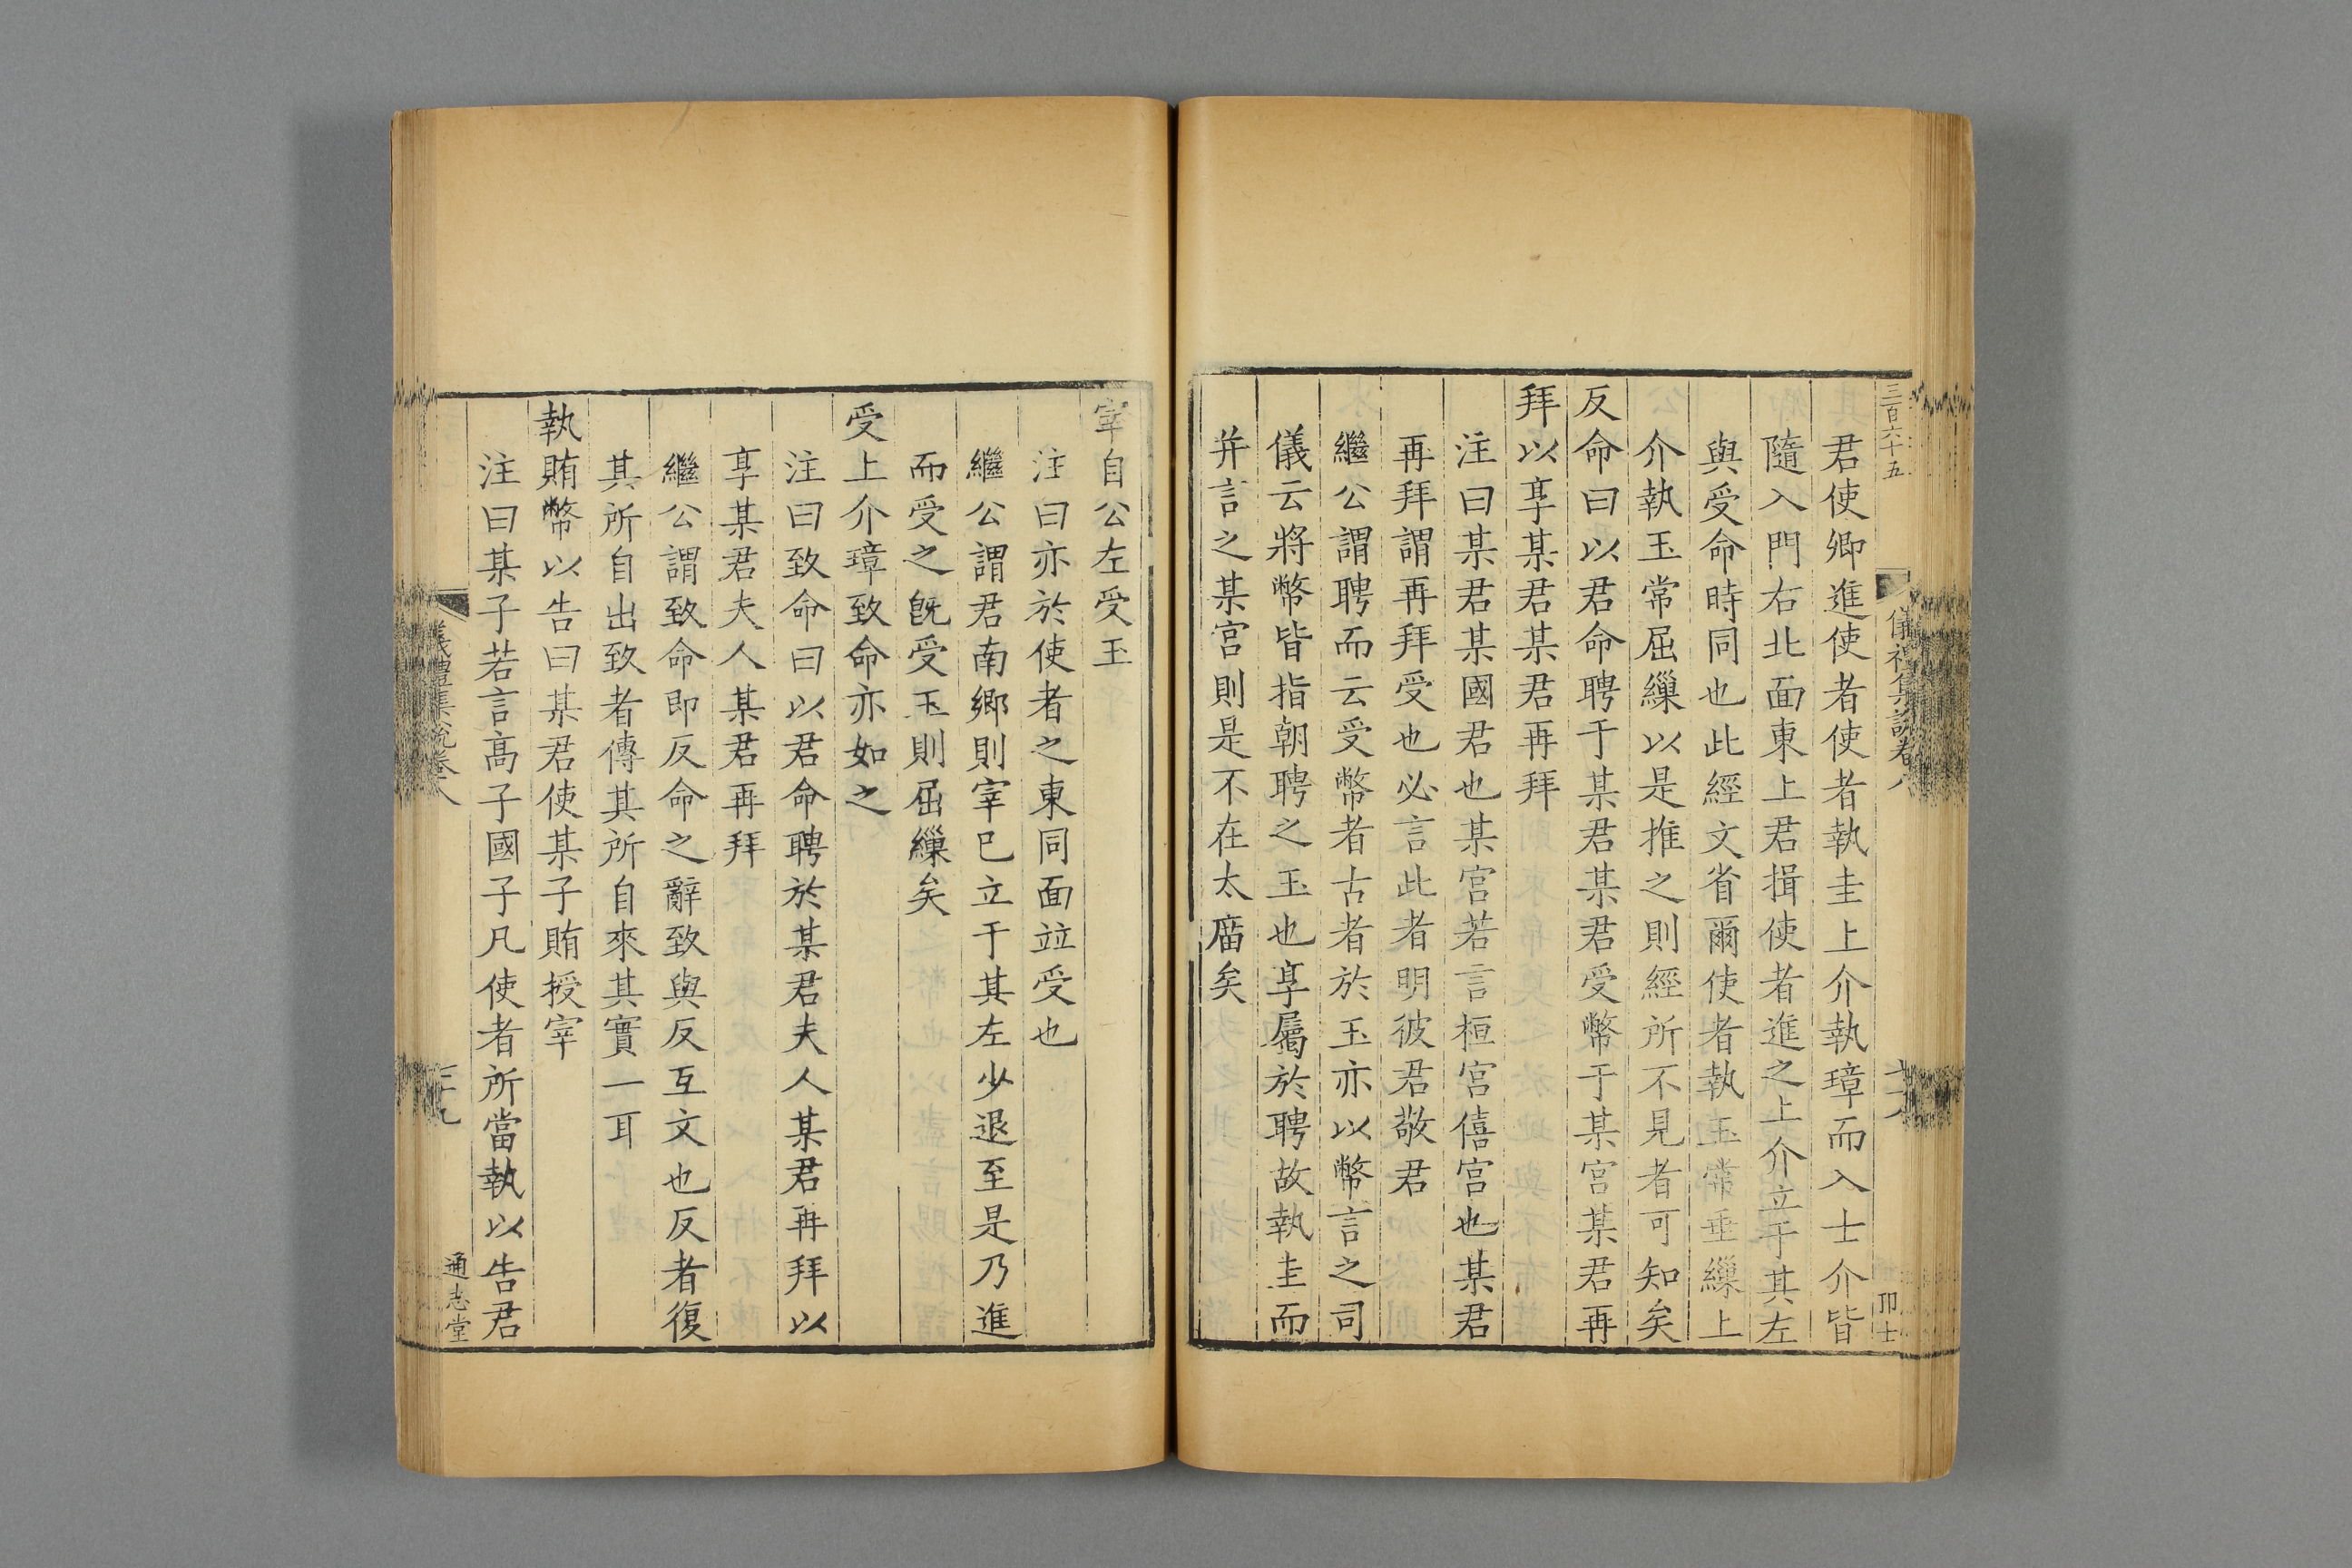 三百六十五
儀禮集說卷八
卯士
君使卿進使者使者執圭上介執璋而入士介皆
隨入門右北面東上君揖使者進之上介立于其左
與受命時同也此經文省爾使者執玉常垂繅上
介執玉常屈繅以是推之則經所不見者可知矣
反命曰以君命聘于某君某君受幣于某宮某君再
拜以享某君某君再拜
注曰某君某國君也某宮若言桓宮僖宮也某君
再拜謂再拜受也必言此者明彼君敬君
繼公謂聘而云受幣者古者於玉亦以幣言之司
儀云將幣皆指朝聘之玉也享屬於聘故執圭而
并言之某宮則是不在太廟矣
宰自公左受玉
注曰亦於使者之東同面竝受也
繼公謂君南鄉則宰已立于其左少退至是乃進
而受之旣受玉則屈繅矣
受上介璋致命亦如之
注曰致命曰以君命聘於某君夫人某君再拜以
享某君夫人某君再拜
繼公謂致命即反命之辭致與反互文也反者復
其所自出致者傳其所自來其實一耳
執賄幣以告曰某君使某子賄授宰
注曰某子若言高子國子凡使者所當執以告君
儀禮集說卷八
三十九
通志堂